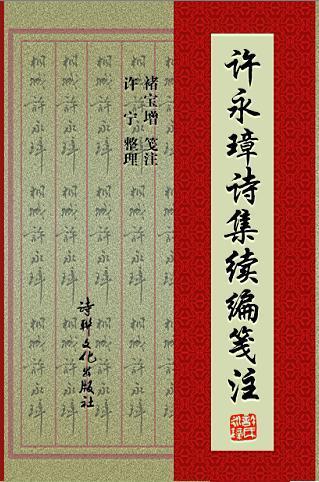 许永璋诗集续编笺注
褚宝增 笺注
许宁 整理
诗联文化出版社
桐城 许永璋 桐城 许永璋 桐城 许永璋
桐城 许永璋 桐城 许永璋 桐城 许永璋
桐城 许永璋 桐城 许永璋 桐城 许永璋
桐城 许永璋 桐城 许永璋 桐城 许永璋